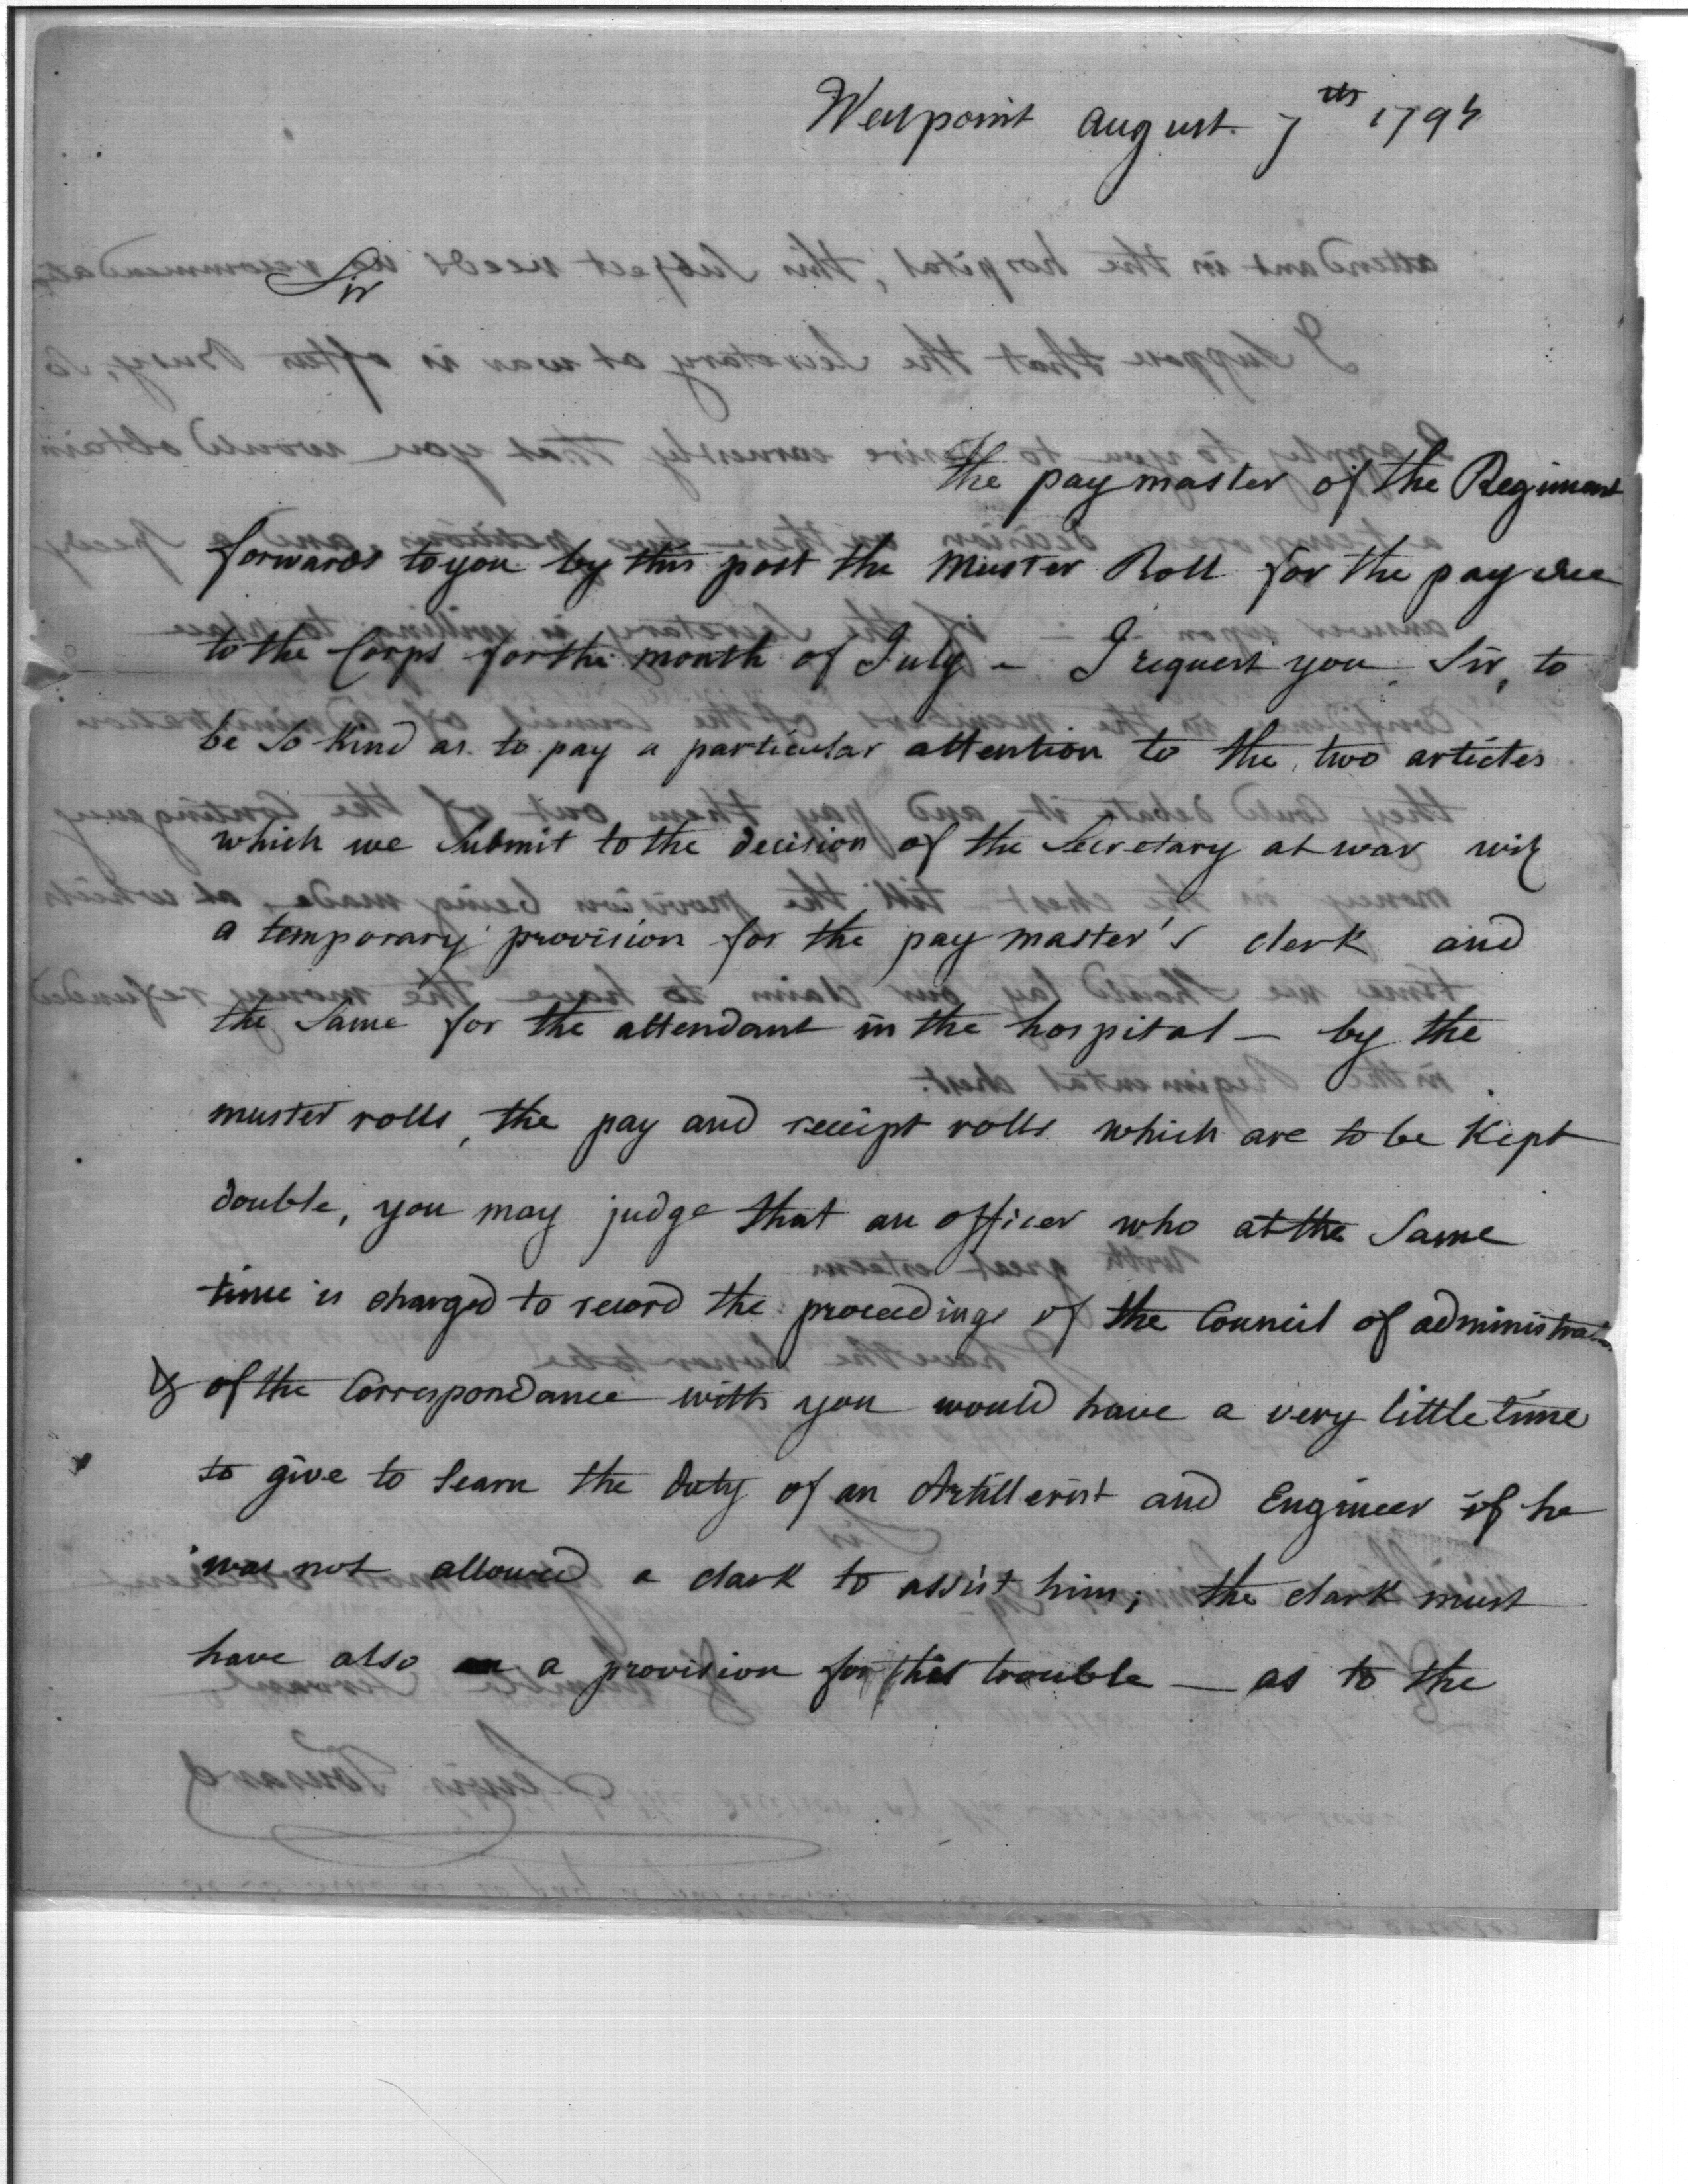 Westpoint August 7th 1795
Sir
the paymaster of the Regiment
forwards to you by this post the Muster Roll for the pay due
to the Corps for the month of July - I request you Sir, to
be so kind as to pay a particular attention to the two articles
which we Submit to the decision of the Secretary at war viz
a temporary provision for the paymaster's clerk and
the Same for the attendant in the hospital - by the
muster rolls, the pay and receipt rolls which are to be Kept
double, you may judge that an officer who at the Same
time is charged to record the proceedings of the Council of administration
& of the Correspondance with you would have a very little time
to give to learn the duty of an Artillerist and Engineer if he
was not allowed a clark to assist him; the clark must
have also a provision for his trouble — as to the